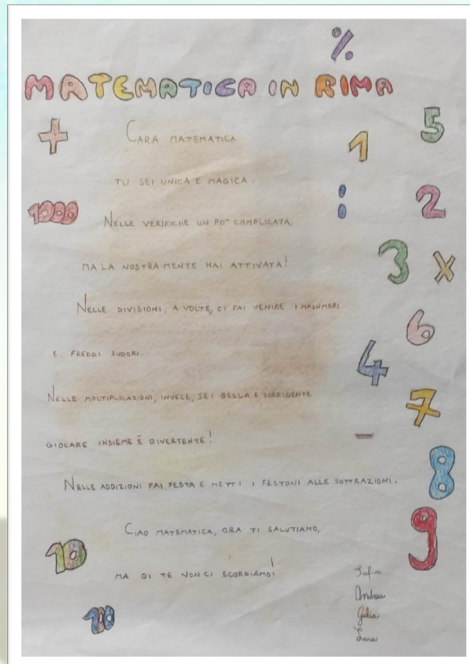 %
MATEMATICA IN RIMA
+
CARA MATEMATICA
TU SEI UNICA E MAGICA.
1000
NELLE VERIFICHE UN PO' COMPLICATA,
MA LA NOSTRA MENTE HAI ATTIVATA!
NELLE DIVISIONI, A VOLTE, CI FAI VENIRE I MALUMORI
E FREDDI SUDORI.
NELLE MOLTIPLICAZIONI, INVECE, SEI BELLA E SORRIDENTE
GIOCARE INSIEME È DIVERTENTE!
NELLE ADDIZIONI FAI FESTA E METTI I FESTONI ALLE SOTTRAZIONI.
CIAO MATEMATICA, ORA TI SALUTIAMO,
MA DI TE NON CI SCORDIAMO!
10
1
5
:
2
3 x
6
4
7
-
8
9
Andrea
Giulia